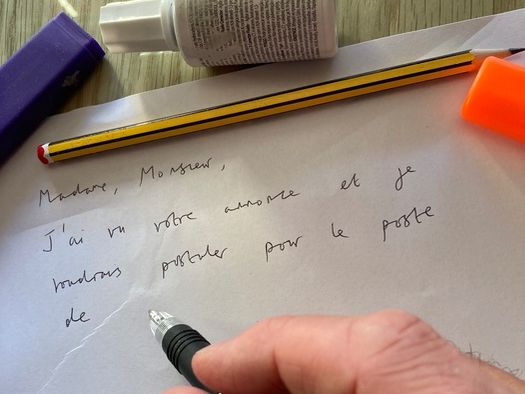 Madame, Monsieur,
J'ai vu votre annonce et je
voudrais postuler pour le poste
de